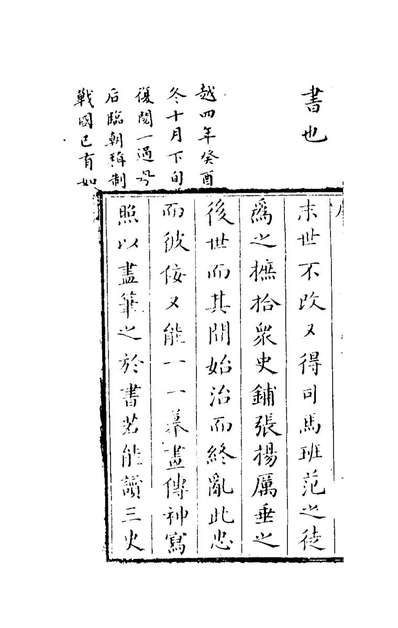 書也
越四年癸酉
冬十月下旬
復閱一過
后臨朝稱制
戰國已有如
末世不改又得司馬班范之徒
爲之摭拾衆史鋪張揚厲垂之
後世而其間始治而終亂此忠
而彼佞又能一一摹畫傳神寫
照以盡筆之於書若能讀三史